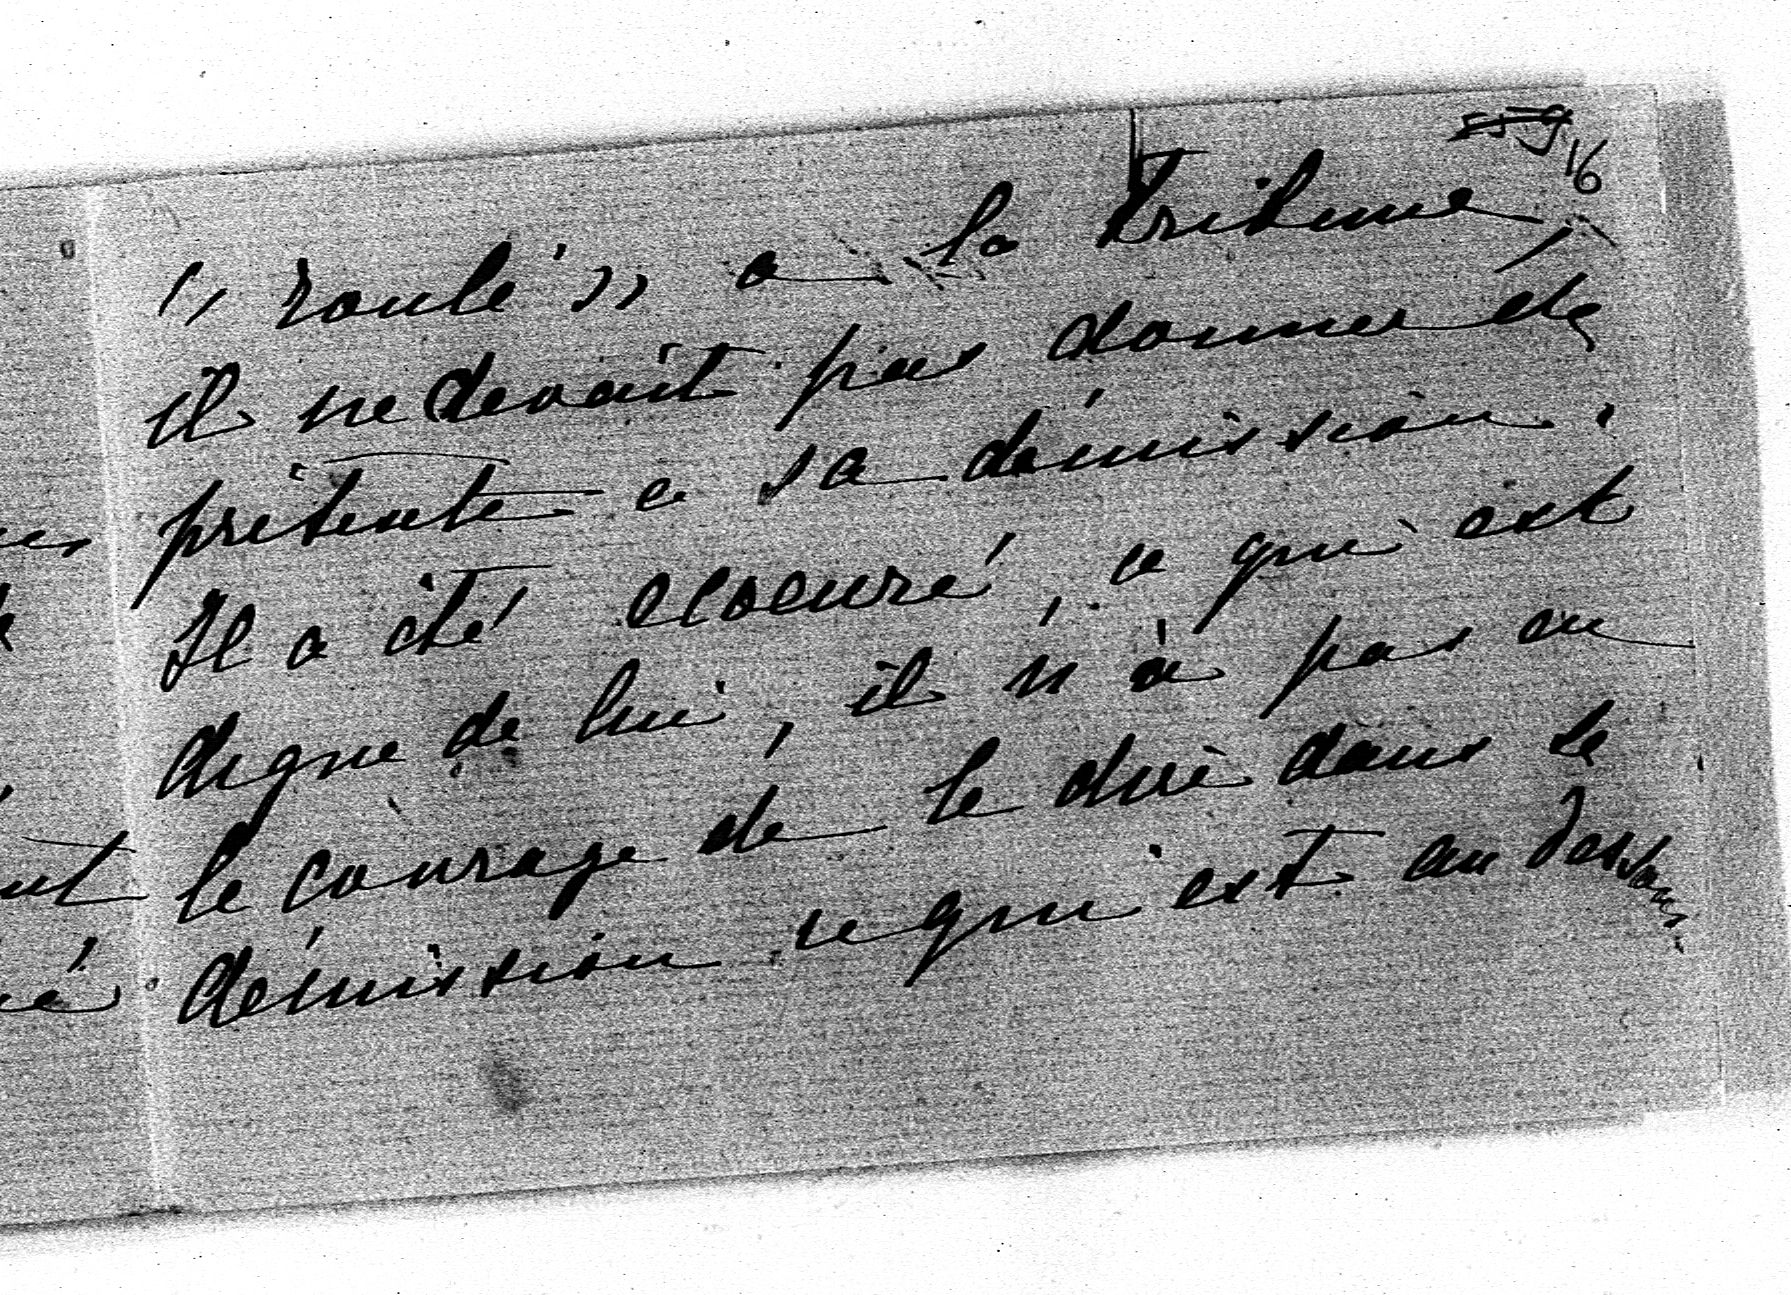 16
" roulé " a la Tribune,
il ne devait pas donner de
prétexte a sa démission.
Il a été ecoeuré, ce qui est
digne de lui, il n'a pas eu
le courage de le dire dans sa
démission ce qui est au dessous.